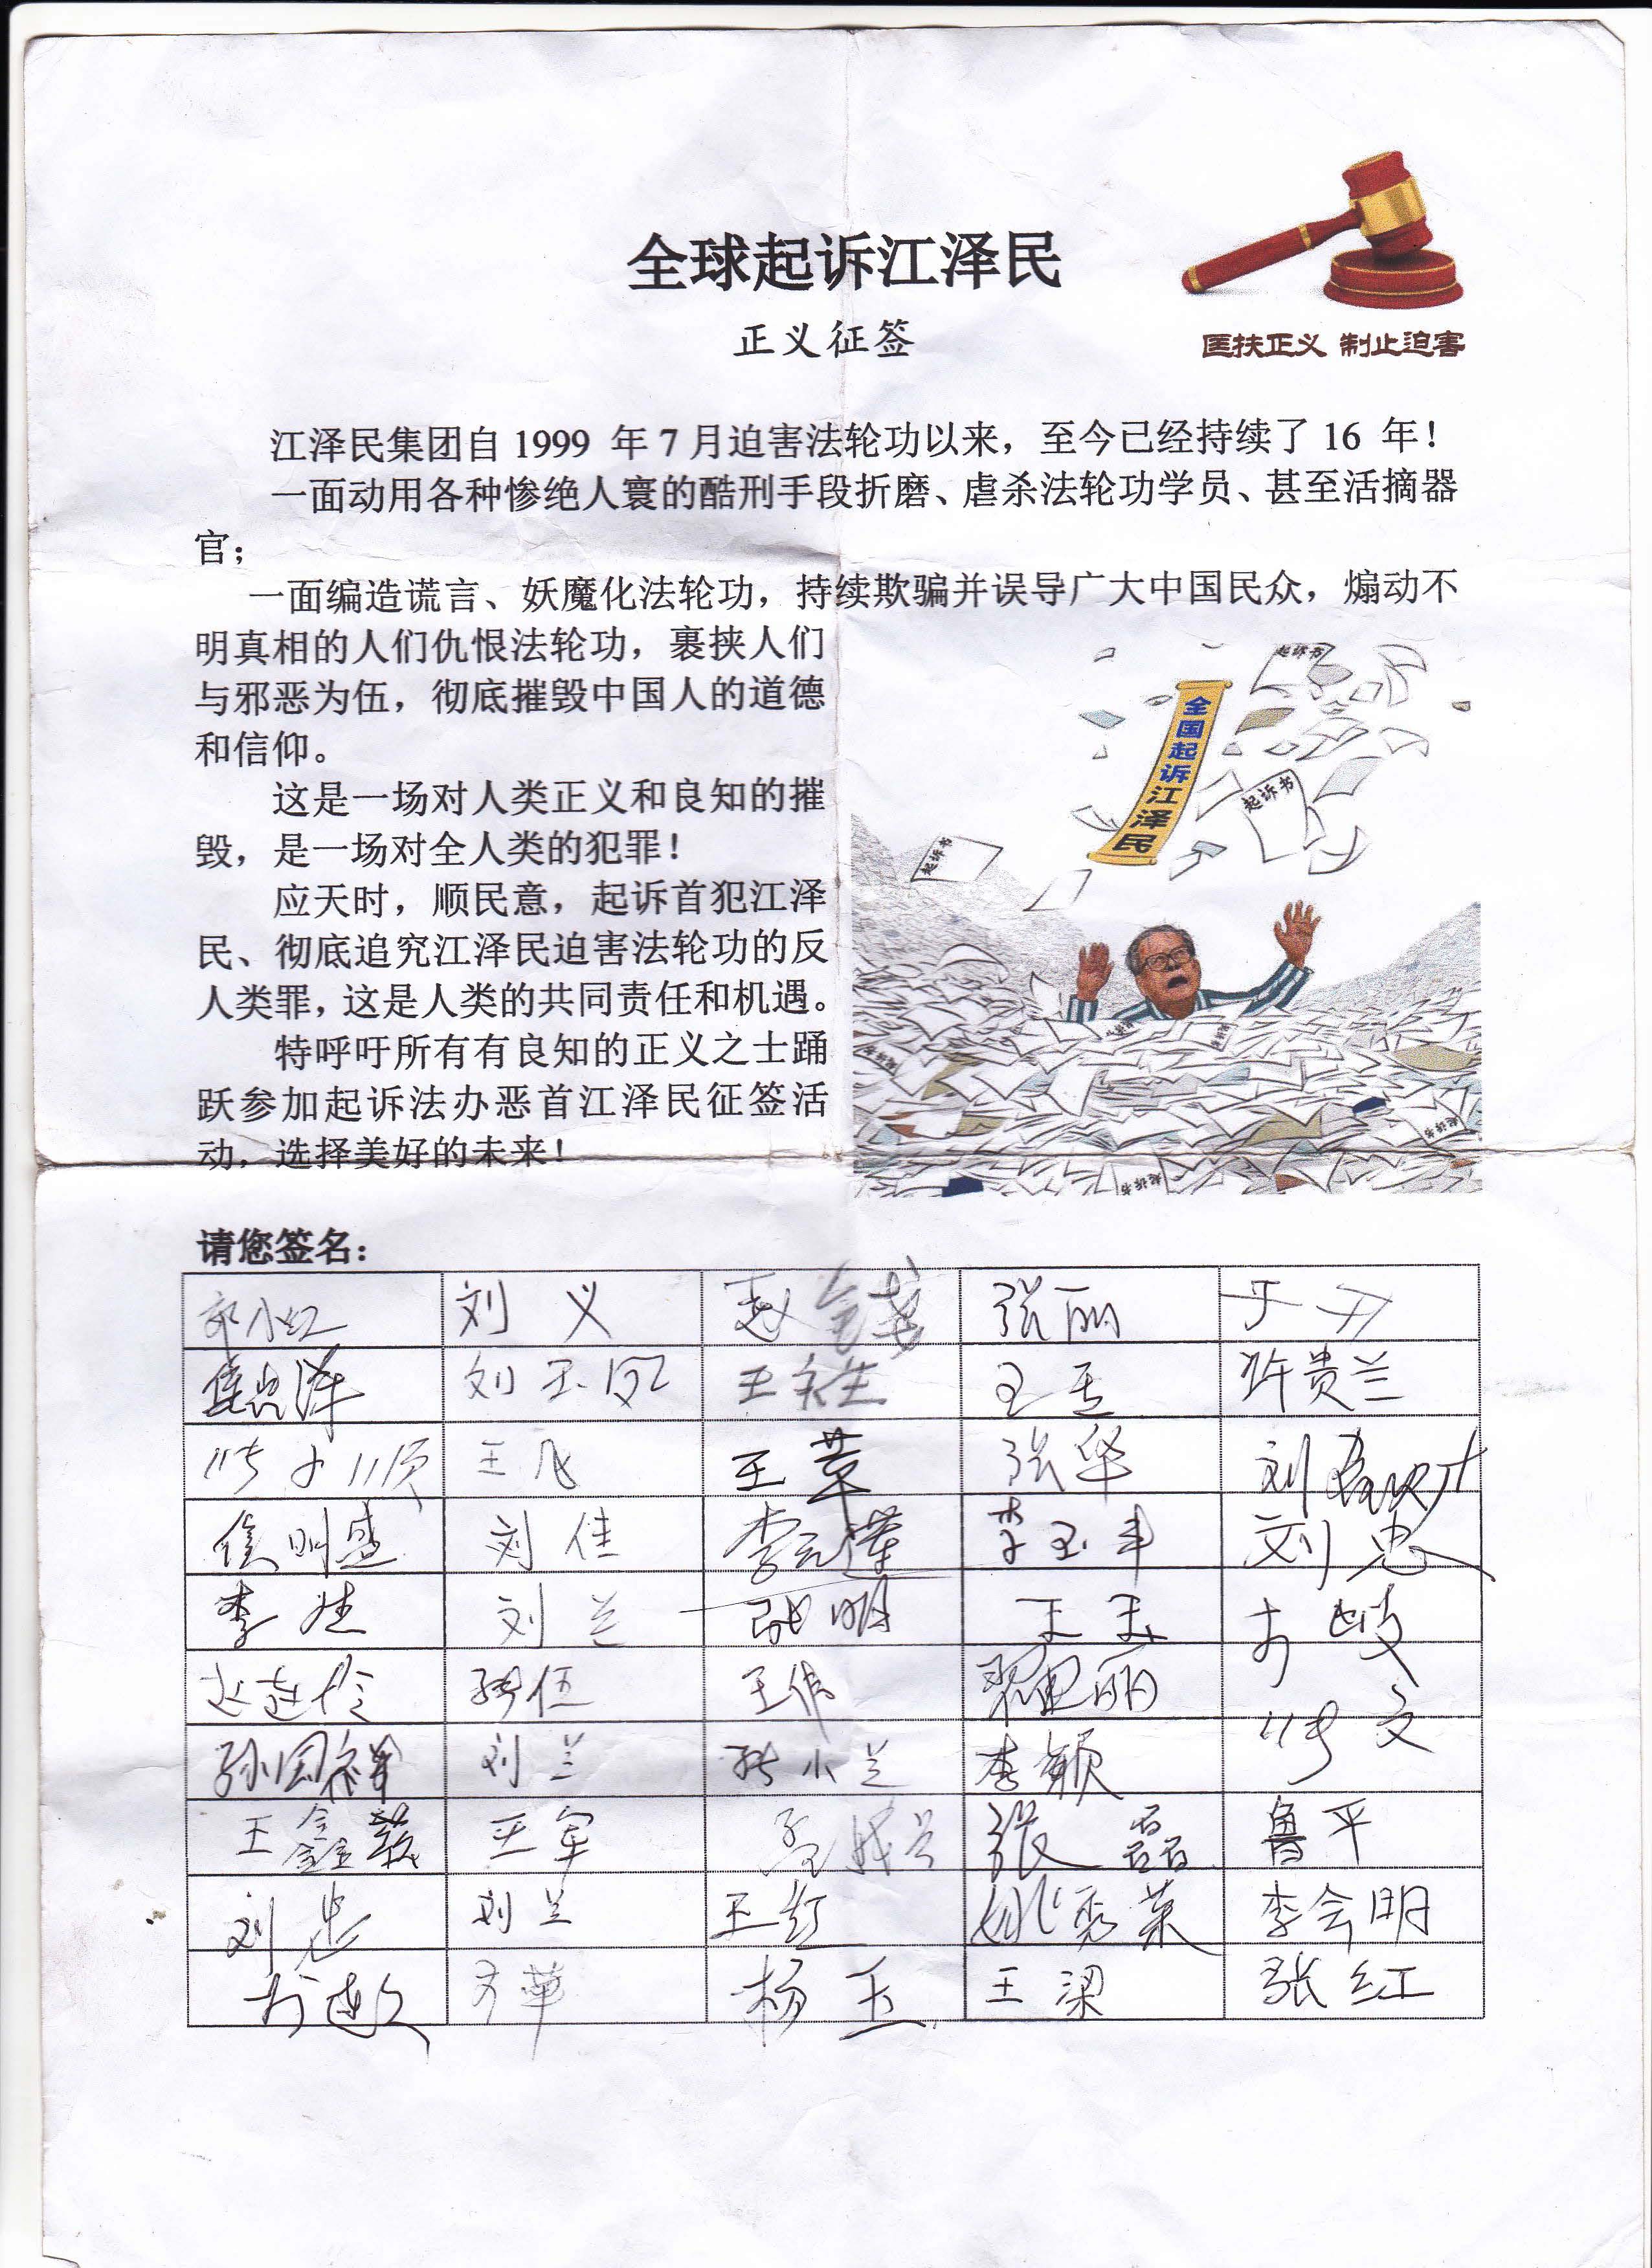 全球起诉江泽民
正义征签
匡扶正义 制止迫害
江泽民集团自 1999 年 7 月迫害法轮功以来，至今已经持续了 16 年！
一面动用各种惨绝人寰的酷刑手段折磨、虐杀法轮功学员、甚至活摘器
官；
一面编造谎言、妖魔化法轮功，持续欺骗并误导广大中国民众，煽动不
明真相的人们仇恨法轮功，裹挟人们
与邪恶为伍，彻底摧毁中国人的道德
和信仰。
这是一场对人类正义和良知的摧
毁，是一场对全人类的犯罪！
应天时，顺民意，起诉首犯江泽
民、彻底追究江泽民迫害法轮功的反
人类罪，这是人类的共同责任和机遇。
特呼吁所有有良知的正义之士踊
跃参加起诉法办恶首江泽民征签活
动，选择美好的未来！
起诉书
全国起诉江泽民
起诉书
起诉书
起诉书
起诉书
请您签名：
刘义 张丽
刘玉凤 许贵兰
王飞 王苹 张华
侯明盛 刘佳 李玉丰 刘忠
刘兰 张明 王玉
张伍 王伟
孙国祥 刘兰 张小兰 李颖
王军 张磊 鲁平
刘忠 刘兰 王红 姚秀荣 李会明
杨玉 王梁 张红